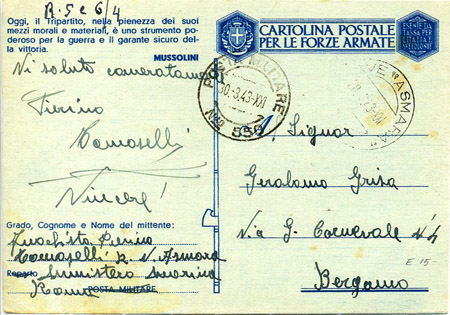 R.S e 6/4
Oggi, il Tripartito, nella pienezza dei suoi
mezzi morali e materiali, è uno strumento po-
deroso per la guerra e il garante sicuro del-
la vittoria.
MUSSOLINI
CARTOLINA POSTALE
PER LE FORZE ARMATE
ESENTE DA
TASSA PER
ITALIA E
COLONIE
Vi saluto
Pierino
Tomaselli
Vincere!
POSTA MILITARE
30.3.43-XXI
No2 550
NAVE "ASMARA"
Signor
Gerolamo Griza
Via G. Carnevale
Bergamo
E 15-
Grado, Cognome e Nome del mittente:
Fuochista Pierino
Tomaselli R. N. Asmara
Reparto Ministero Marina
Roma POSTA MILITARE